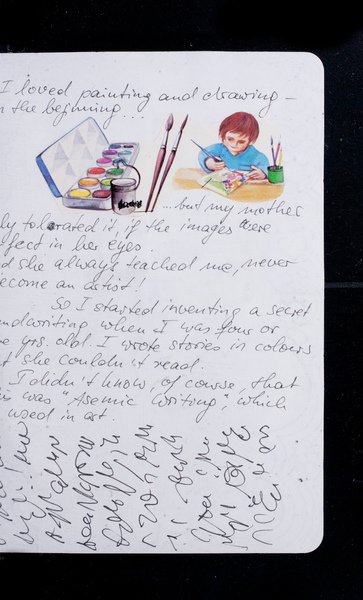 I loved painting and drawing –
the beginning...
...but my mother
tolerated it, if the images were
in her eyes.
she always teached me, never
become an artist!
So I started inventing a secret
handwriting when I was four or
yrs. old. I wrote stories in colours
she couldn't read.
I didn't know, of course, that
was "Asemic Writing", which
used in art.